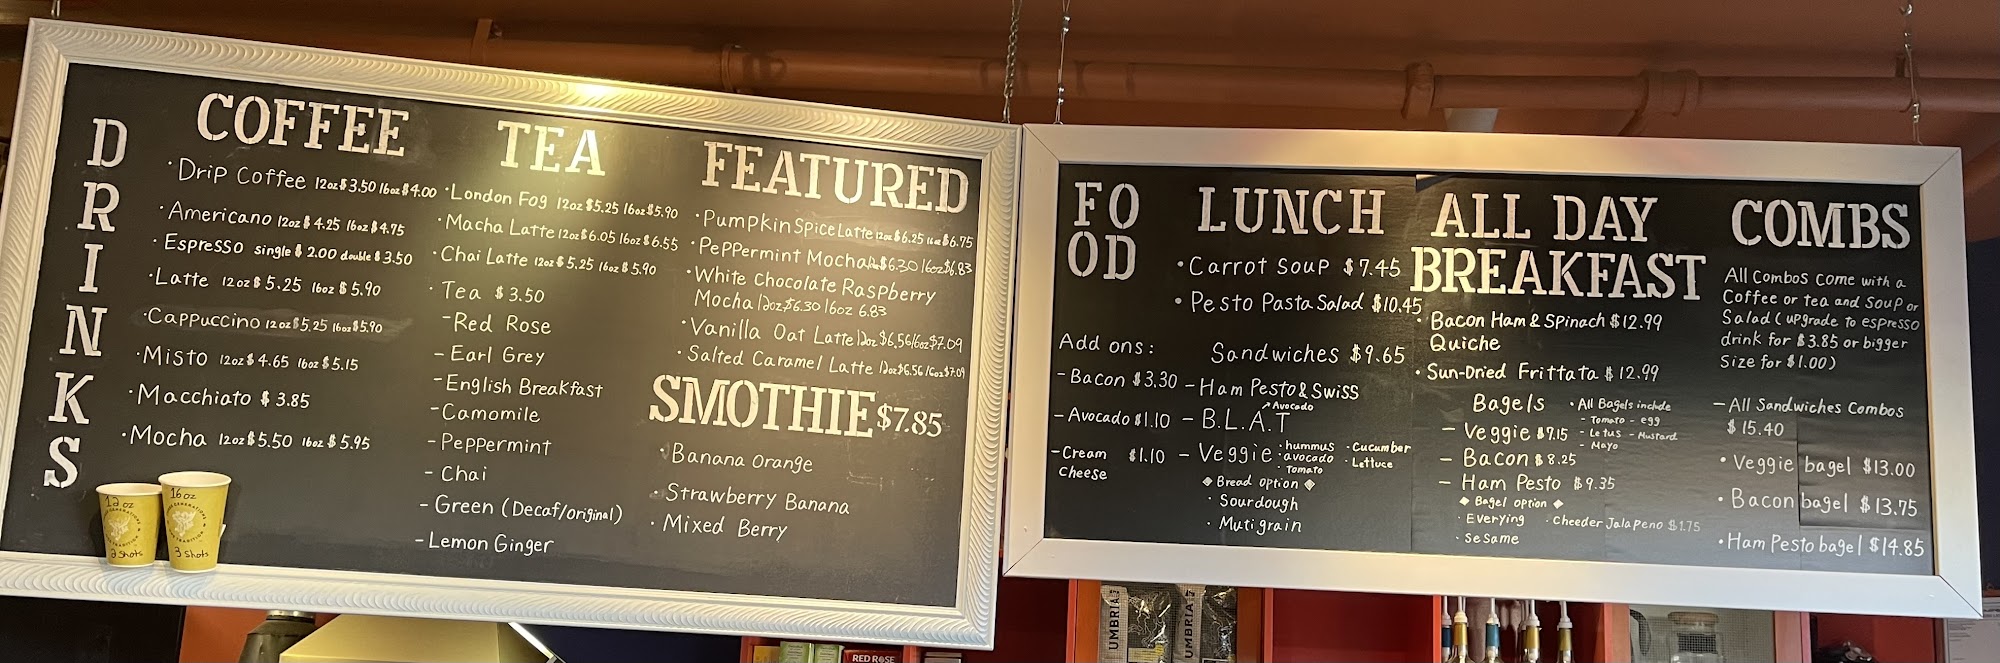 DRINKS
COFFEE
·Drip Coffee 12oz $3.50 16oz $4.00
·Americano 12oz $4.25 16oz $4.75
·Espresso single $2.00 double $3.50
·Latte 12oz $5.25 16oz $5.90
·Cappuccino 12oz $5.25 16oz $5.90
·Misto 12oz $4.65 16oz $5.15
·Macchiato $3.85
·Mocha 12oz $5.50 16oz $5.95
12oz
2 shots
16oz
3 shots
TEA
·London Fog 12oz $5.25 16oz $5.90
·Macha Latte 12oz $6.05 16oz $6.55
·Chai Latte 12oz $5.25 16oz $5.90
·Tea $3.50
-Red Rose
-Earl Grey
-English Breakfast
-Camomile
-Peppermint
-Chai
-Green (Decaf/original)
-Lemon Ginger
FEATURED
·Pumpkin Spice Latte 12oz $6.25 16oz $6.75
·Peppermint Mocha 12oz $6.30 16oz $6.83
·White Chocolate Raspberry
Mocha 12oz $6.30 16oz 6.83
·Vanilla Oat Latte 12oz $6.56 16oz $7.09
·Salted Caramel Latte 12oz $6.56 16oz $7.09
SMOTHIE $7.85
·Banana Orange
·Strawberry Banana
·Mixed Berry
FO
OD
Add ons:
-Bacon $3.30
-Avocado $1.10
-Cream $1.10
Cheese
LUNCH
·Carrot Soup $7.45
·Pesto Pasta Salad $10.45
Sandwiches $9.65
-Ham Pesto & Swiss
-B.L.A.T
↗Avocado
-Veggie
·hummus
·avocado
·Tomato
·Cucumber
·Lettuce
◆ Bread option ◆
·Sourdough
·Mutigrain
ALL DAY
BREAKFAST
·Bacon Ham & Spinach $12.99
Quiche
·Sun-Dried Frittata $12.99
Bagels
·All Bagels include
-Tomato -egg
-Letus -Mustard
-Mayo
-Veggie $7.15
-Bacon $8.25
-Ham Pesto $9.35
◆ Bagel option ◆
·Everying ·Cheeder Jalapeno $1.75
·Sesame
COMBS
All Combos come with a
Coffee or tea and Soup or
Salad (upgrade to espresso
drink for $3.85 or bigger
Size for $1.00)
-All Sandwiches Combos
$15.40
·Veggie bagel $13.00
·Bacon bagel $13.75
·Ham Pesto bagel $14.85
UMBRIA
UMBRIA
RED ROSE